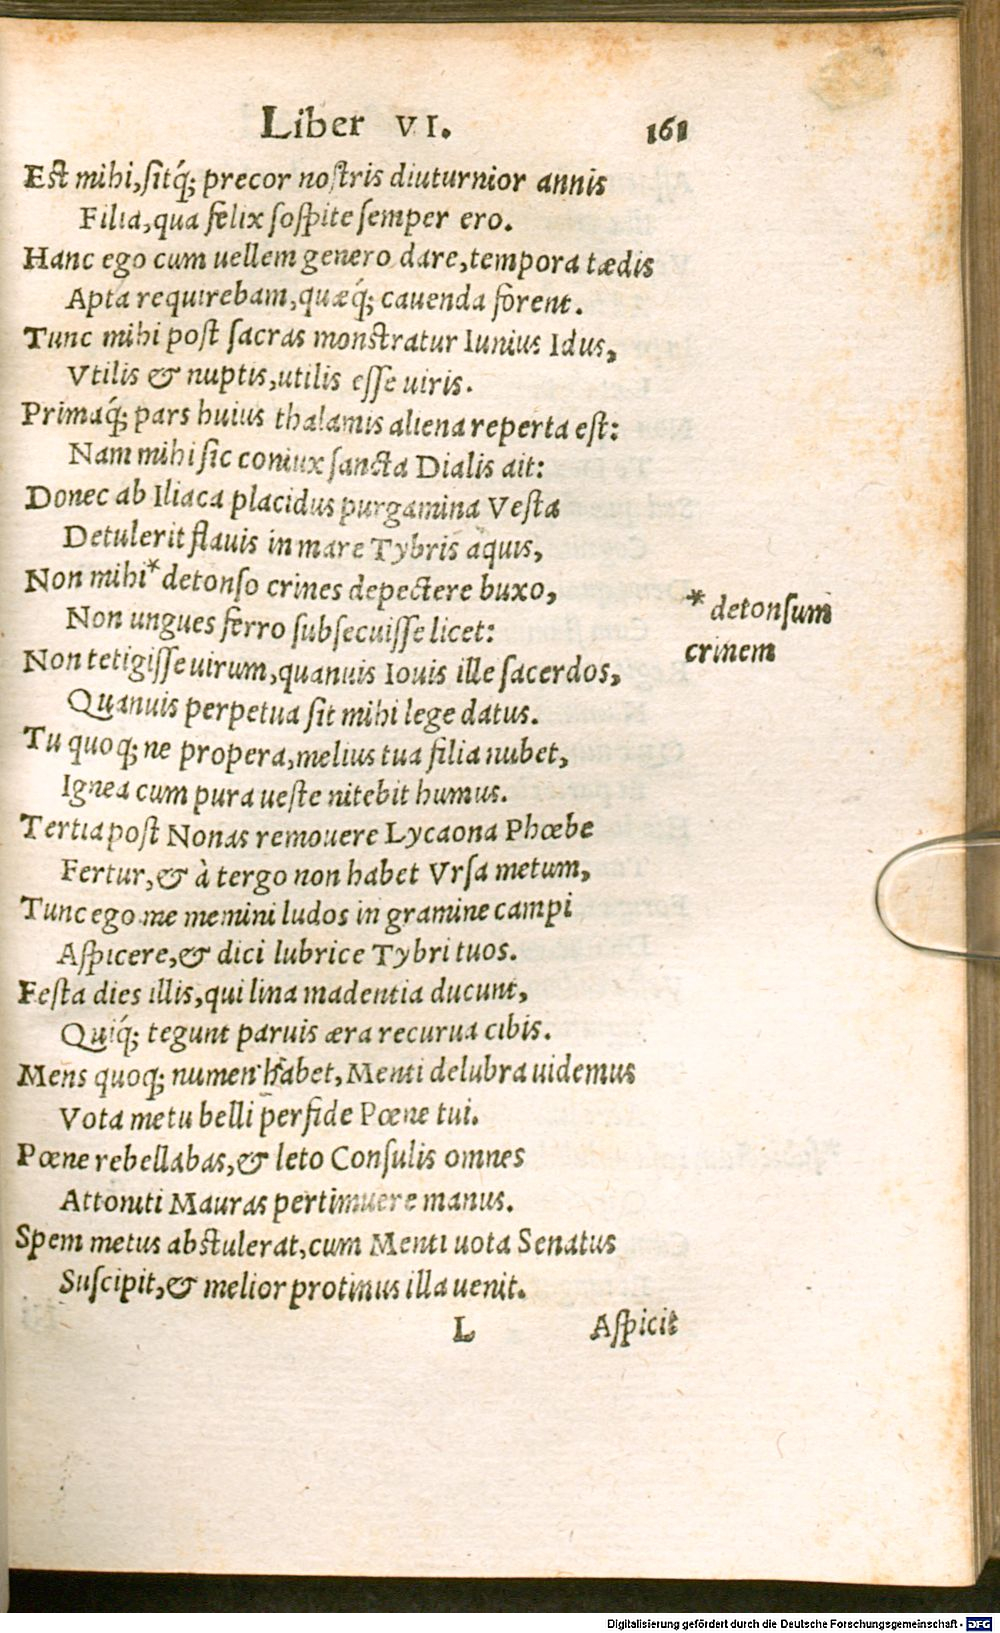 Liber VI. 161
Est mihi, sitq́; precor nostris diuturnior annis
Filia, qua felix sospite semper ero.
Hanc ego cum uellem genero dare, tempora tædis
Apta requirebam, quæq́; cauenda forent.
Tunc mihi post sacras monstratur Iunius Idus,
Vtilis & nuptis, utilis esse uiris.
Primaq́; pars huius thalamis aliena reperta est:
Nam mihi sic coniux sancta Dialis ait:
Donec ab Iliaca placidus purgamina Vesta
Detulerit flauis in mare Tybris aquis,
Non mihi * detonso crines depectere buxo,
* detonsum
crinem
Non ungues ferro subsecuisse licet:
Non tetigisse uirum, quanuis Iouis ille sacerdos,
Quanuis perpetua sit mihi lege datus.
Tu quoq; ne propera, melius tua filia nubet,
Ignea cum pura ueste nitebit humus.
Tertia post Nonas remouere Lycaona Phœbe
Fertur, & à tergo non habet Vrsa metum,
Tunc ego me memini ludos in gramine campi
Aspicere, & dici lubrice Tybri tuos.
Festa dies illis, qui lina madentia ducunt,
Quiq́; tegunt paruis æra recurua cibis.
Mens quoq; numen habet, Menti delubra uidemus
Vota metu belli perfide Pœne tui.
Pœne rebellabas, & leto Consulis omnes
Attoniti Mauras pertimuere manus.
Spem metus abstulerat, cum Menti uota Senatus
Suscipit, & melior protinus illa uenit.
L Aspicit
Digitalisierung gefördert durch die Deutsche Forschungsgemeinschaft - DFG